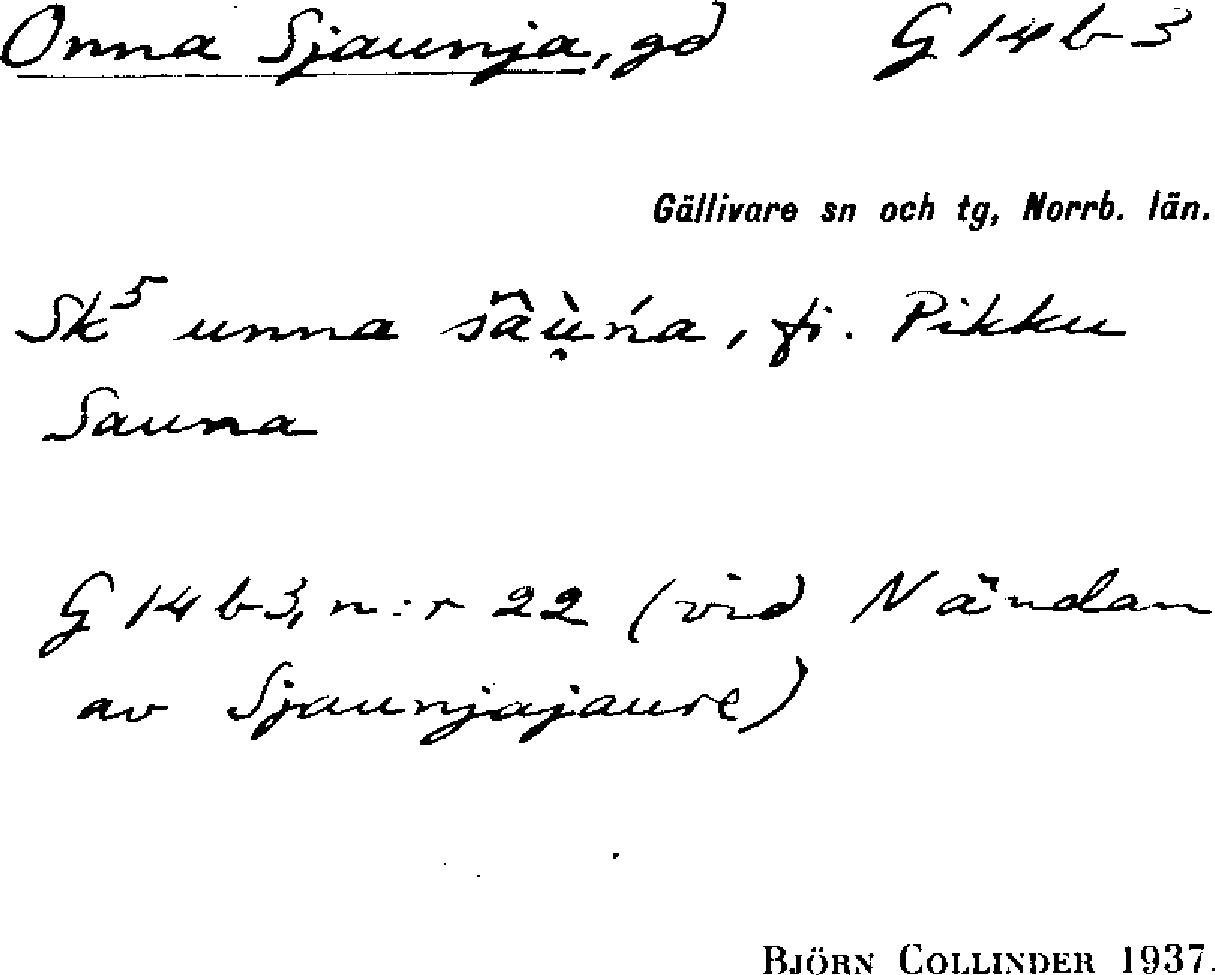 Onna Sjaunja, gd G 14 b 3
Gällivare sn och tg, Norrb. län.
Sk⁵ unna , fi. Pikku
Sauna
G 14 b 3, n:r 22 (vid N ändan
av Sjaunjajaure)
BJÖRN COLLINDER 1937.